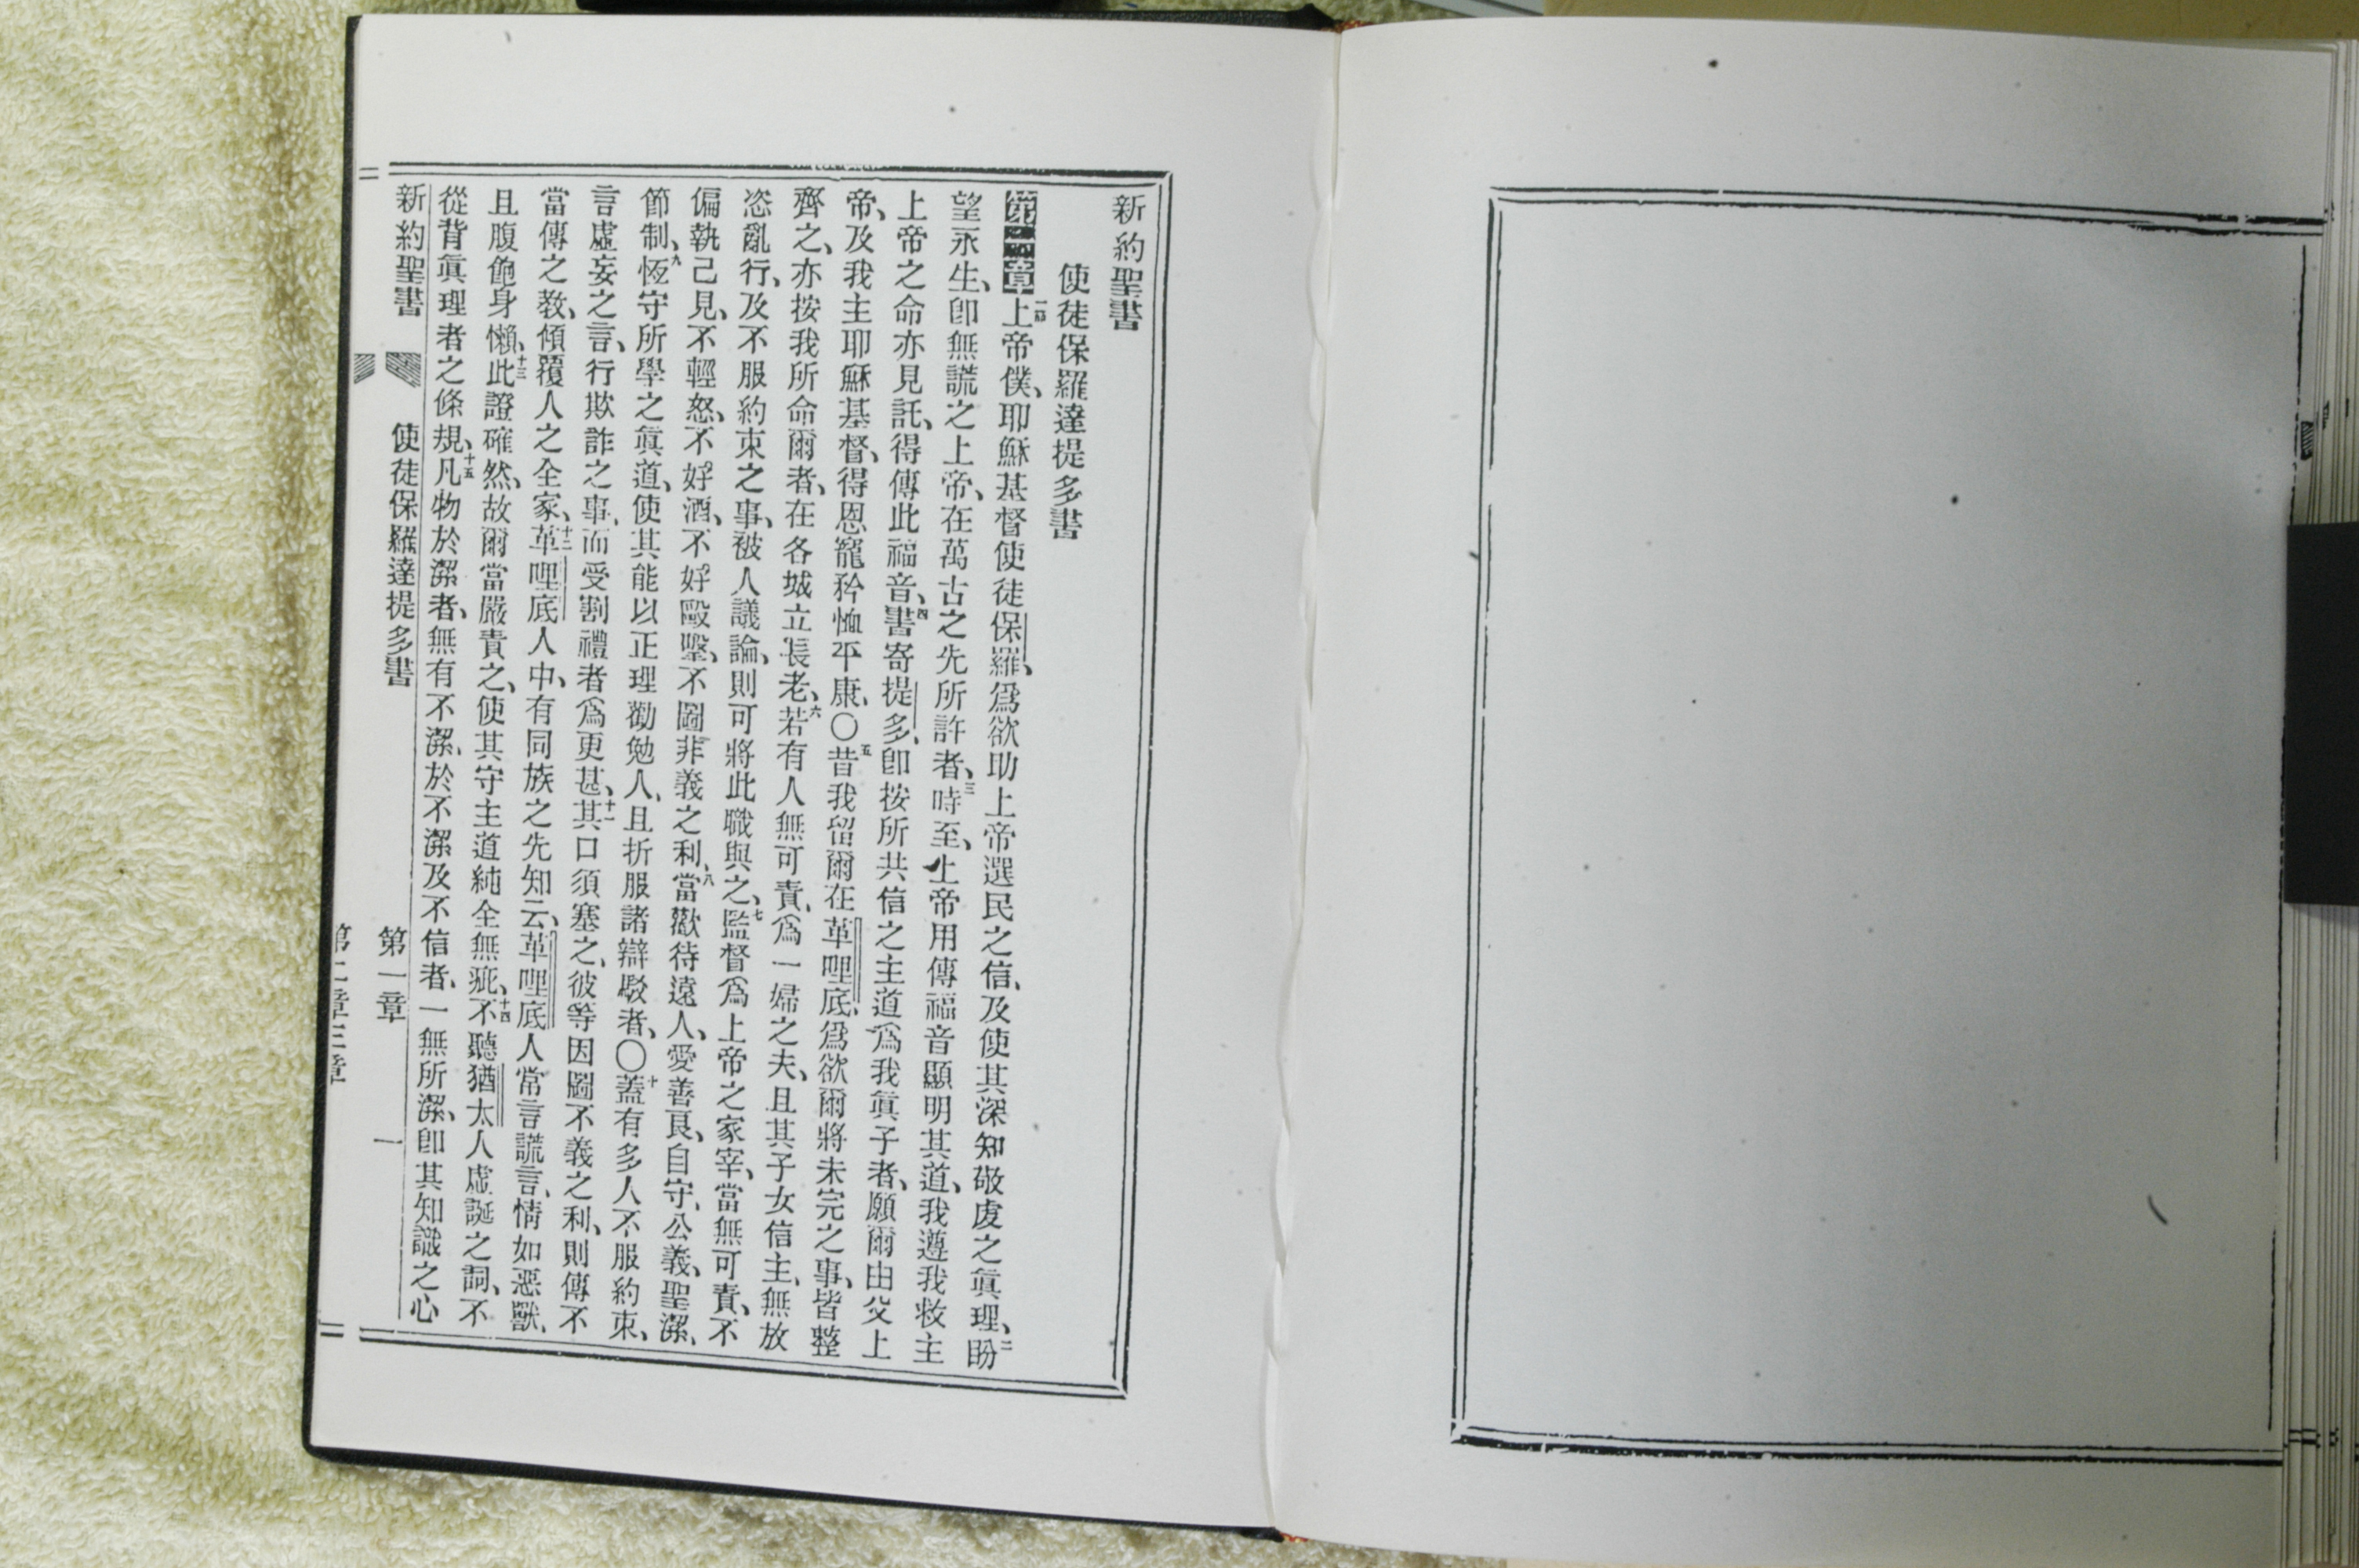 新約聖書
使徒保羅達提多書
第一章一節上帝僕、耶穌基督使徒保羅、爲欲助上帝選民之信、及使其深知敬虔之眞理、二盼
望永生、卽無謊之上帝、在萬古之先所許者、三時至、上帝用傳福音顯明其道、我遵我救主
上帝之命亦見託、得傳此福音、四書寄提多、卽按所共信之主道、爲我眞子者、願爾由父上
帝、及我主耶穌基督、得恩寵矜恤平康、〇五昔我留爾在革哩底、爲欲爾將未完之事、皆整
齊之、亦按我所命爾者、在各城立長老、六若有人無可責、爲一婦之夫、且其子女信主、無放
恣亂行、及不服約束之事、被人議論、則可將此職與之、七監督爲上帝之家宰、當無可責、不
偏執己見、不輕怒、不好酒、不好毆擊、不圖非義之利、八當歡待遠人、愛善良、自守、公義、聖潔、
節制、九恆守所學之眞道、使其能以正理勸勉人、且折服諸辯駁者、〇十蓋有多人不服約束、
言虛妄之言、行欺詐之事、而受割禮者爲更甚、十一其口須塞之、彼等因圖不義之利、則傳不
當傳之教、傾覆人之全家、十二革哩底人中、有同族之先知云、革哩底人常言謊言、情如惡獸、
且腹飽身懶、十三此證確然、故爾當嚴責之、使其守主道純全無疵、十四不聽猶太人虛誕之詞、不
從背眞理者之條規、十五凡物於潔者、無有不潔、於不潔及不信者、一無所潔、卽其知識之心
新約聖書　使徒保羅達提多書　第一章　一
第二章三章